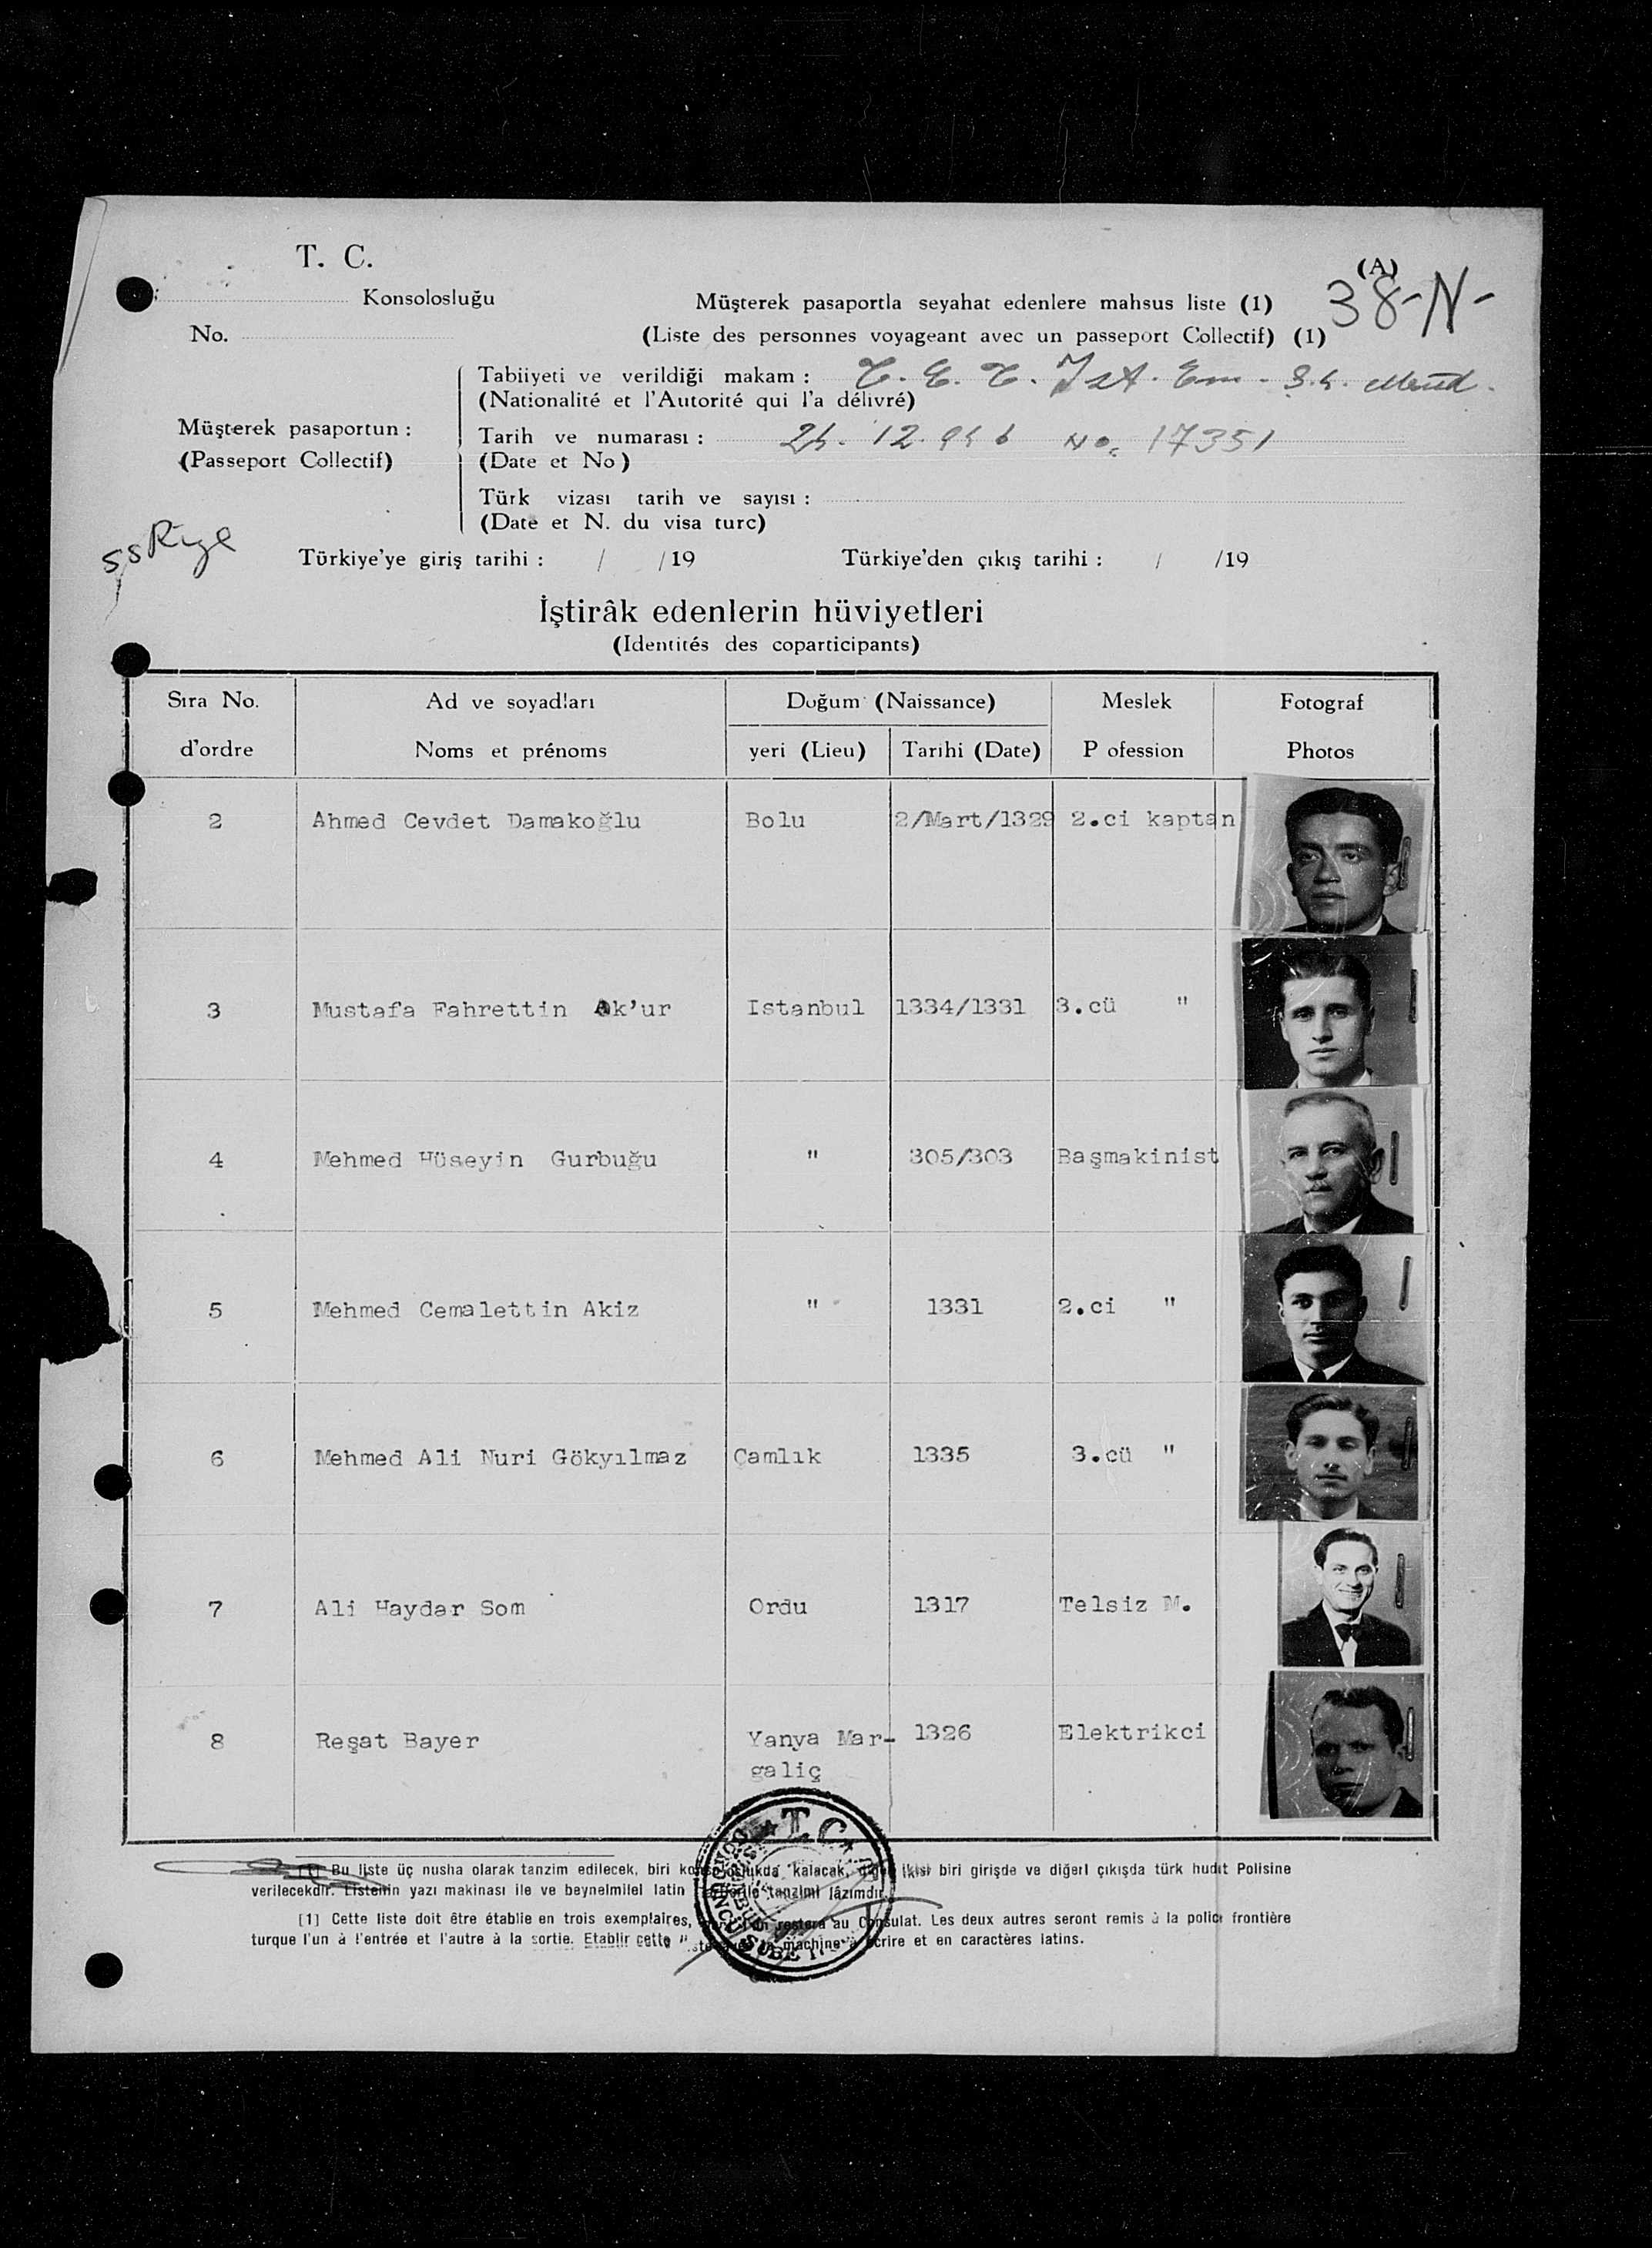 T. C.
(A)
Konsolosluğu
Müşterek pasaportla seyahat edenlere mahsus liste (1)
38-N-
No.
(Liste des personnes voyageant avec un passeport Collectif) (1)
Tabiiyeti ve verildiği makam :
(Nationalité et l'Autorité qui l'a délivré)
Müşterek pasaportun :
(Passeport Collectif)
Tarih ve numarası : 12. No. 17351
(Date et No)
Türk vizası tarih ve sayısı :
(Date et N. du visa turc)
SS Rize
Türkiye'ye giriş tarihi : / /19 Türkiye'den çıkış tarihi : / /19
İştirâk edenlerin hüviyetleri
(Identités des coparticipants)
Sıra No. Ad ve soyadları Doğum (Naissance) Meslek Fotograf
d'ordre Noms et prénoms yeri (Lieu) Tarıhi (Date) P ofession Photos
2 Ahmed Cevdet Damakoğlu Bolu 2/Mart/1329 2.ci kaptan
3 Mustafa Fahrettin Ak'ur Istanbul 1334/1331 3.cü "
4 Mehmed Hüseyin Gurbuğu " 305/303 Başmakinist
5 Mehmed Cemalettin Akiz " 1331 2.ci "
6 Mehmed Ali Nuri Gökyılmaz Çamlık 1335 3.cü "
7 Ali Haydar Som Ordu 1317 Telsiz M.
8 Reşat Bayer Yanya Mar- 1326 Elektrikci
galiç
T. C.
[1] Bu liste üç nusha olarak tanzim edilecek, biri konsoloslukda kalacak, diğer ikisi biri girişde ve diğeri çıkışda türk hudut Polisine
verilecekdir. Listenin yazı makinası ile ve beynelmilel latin tanzimi lâzımdır.
[1] Cette liste doit être établie en trois exemplaires, dont l'un restera au Consulat. Les deux autres seront remis à la police frontière
turque l'un à l'entrée et l'autre à la sortie. Etablir cette liste machine à écrire et en caractères latins.